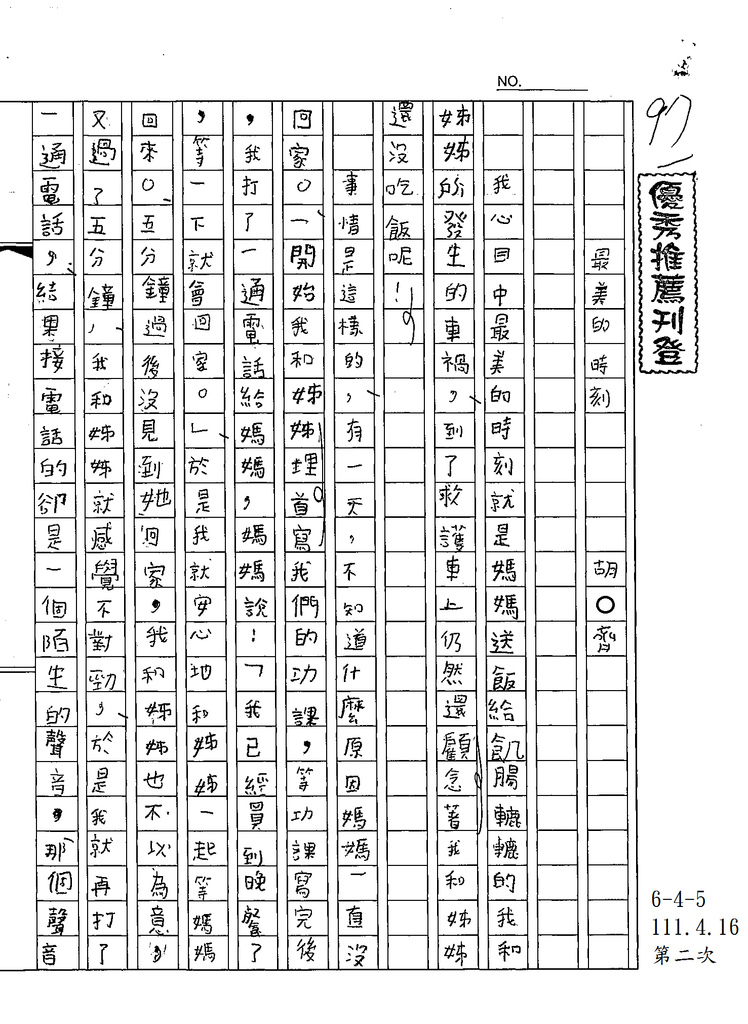 NO.
97
優秀推薦刊登
最美的時刻 胡○齊
我心目中最美的時刻就是媽媽送飯給飢腸轆轆的我和
姊姊所發生的車禍,到了救護車上仍然還顧念著我和姊姊
還沒吃飯呢!
事情是這樣的,有一天,不知道什麼原因媽媽一直沒
回家。一開始我和姊姊埋首寫我們的功課,等功課寫完後
,我打了一通電話給媽媽,媽媽說:「我已經買到晚餐了
,等一下就會回家。」於是我就安心地和姊姊一起等媽媽
回來。五分鐘過後沒見到她回家,我和姊姊也不以為意,
又過了五分鐘,我和姊姊就感覺不對勁,於是我就再打了
一通電話,結果接電話的卻是一個陌生的聲音,那個聲音
6-4-5
111.4.16
第二次